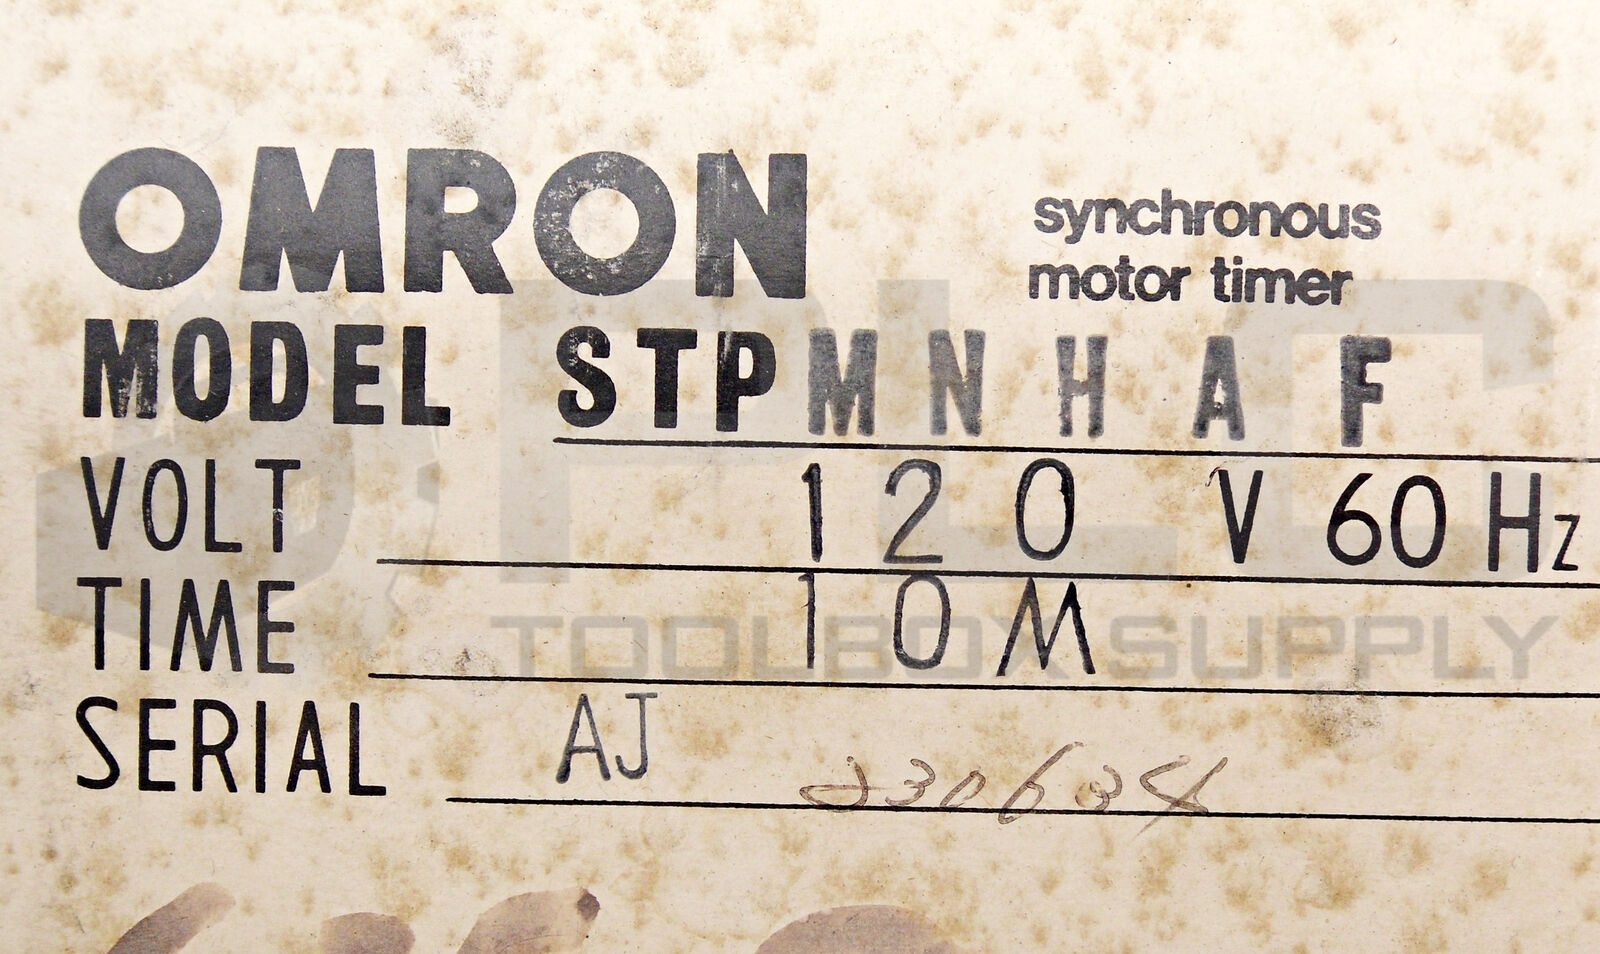 OMRON
synchronous
motor timer
MODEL STPMNHAF
VOLT 120 V 60 Hz
TIME 10M
SERIAL AJ 230634
PLC
TOOLBOX SUPPLY